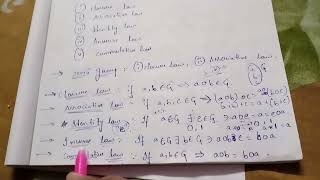 ① Closure law
② Associative law
③ Identity law
④ Inverse law
⑤ Commutative law
→ Semi group : ① Closure law, ② Associative law.
→ Closure law : if a,b∈G ⇒ aob∈G
→ Associative law : if a,b,c∈G ⇒ (aob)oc = ao(boc)
→ Identity law : If a∈G ∃ e∈G ∋ aoe = eoa = a
→ Inverse law : If a∈G ∃ b∈G ∋ aob = boa = e
→ Commutative law : If a,b∈G ⇒ aob = boa.